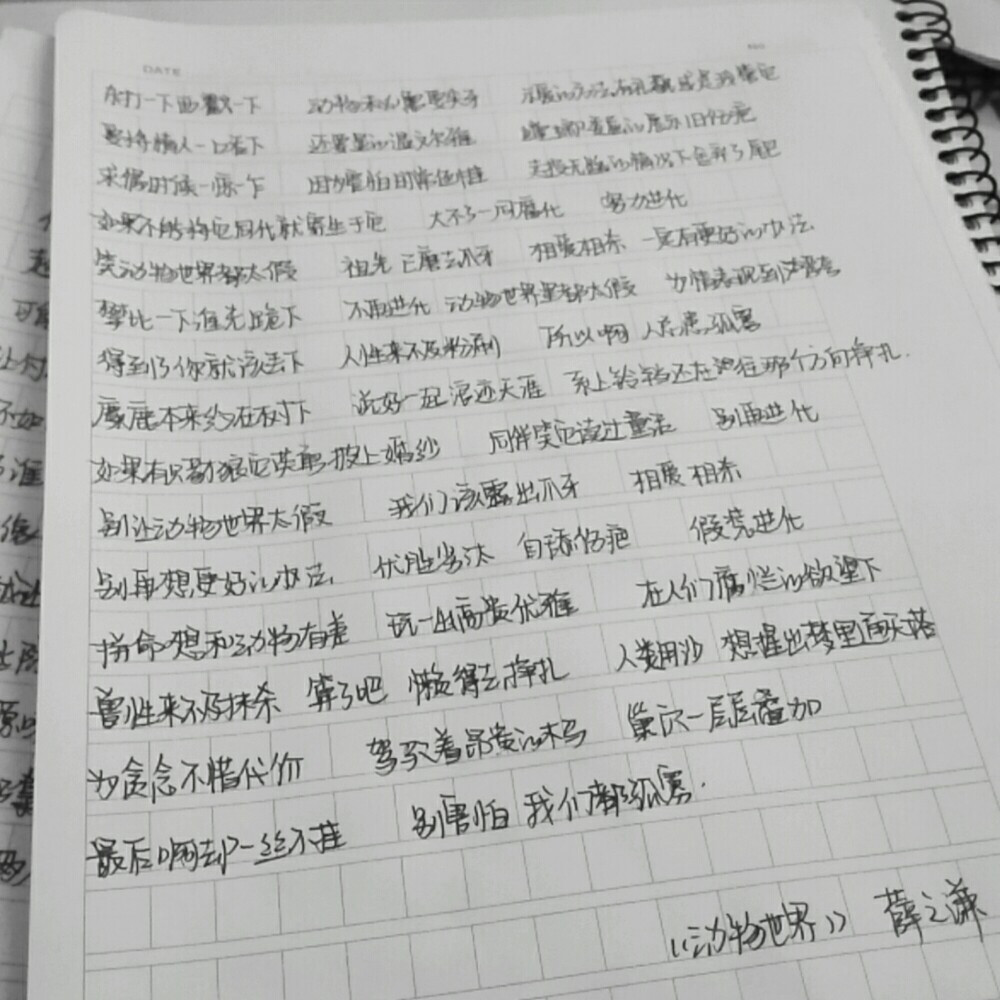 DATE
东打一下西戳一下 动物未必需要尖牙 示爱的方法有孔雀
要将情人一口吞下 还需要的温文尔雅
采偶时候一惊一乍 因为害怕日常倾轧 走投无路的情况下舍弃了尾巴
如果不能将它同化就寄生于它 大不了一同腐化 努力进化
笑动物世界都太假 祖先已磨去爪牙 相爱相杀 一定有更好的办法
攀比一下谁先跪下 不再进化 动物世界里都太假 为情表现到浮夸
得到了你就该丢下 人性来不及粉刷 所以啊 人总患孤寡
麋鹿本来约在树下 说好一起浪迹天涯 系上铃铛还在往那个方向挣扎.
如果有只豺狼它英勇披上婚纱 同伴笑它读过童话 别再进化
别让动物世界太假 我们该露出爪牙 相爱相杀
别再想更好的办法 优胜劣汰 自舔伤疤 假装进化
拼命想和动物有差 玩一出高贵优雅 在人们腐烂的欲望下
兽性来不及抹杀 算了吧 懒得去挣扎 人类用沙 想捏出梦里通天塔
为贪念不惜代价 驾驭着昂贵的木马 巢穴一层层叠加
最后啊却一丝不挂 别害怕 我们都孤寡.
《动物世界》 薛之谦